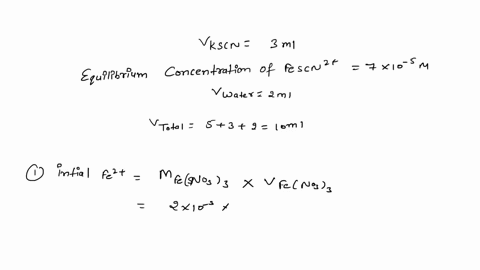 V KSCN = 3 ml
Equilibrium Concentration of FeSCN²⁺ = 7 × 10⁻⁵ M
V water = 2 ml
V Total = 5 + 3 + 2 = 10 ml
① intial Fe²⁺ = M Fe(NO₃)₃ × V Fe(NO₃)₃
= 2 × 10⁻³ ×